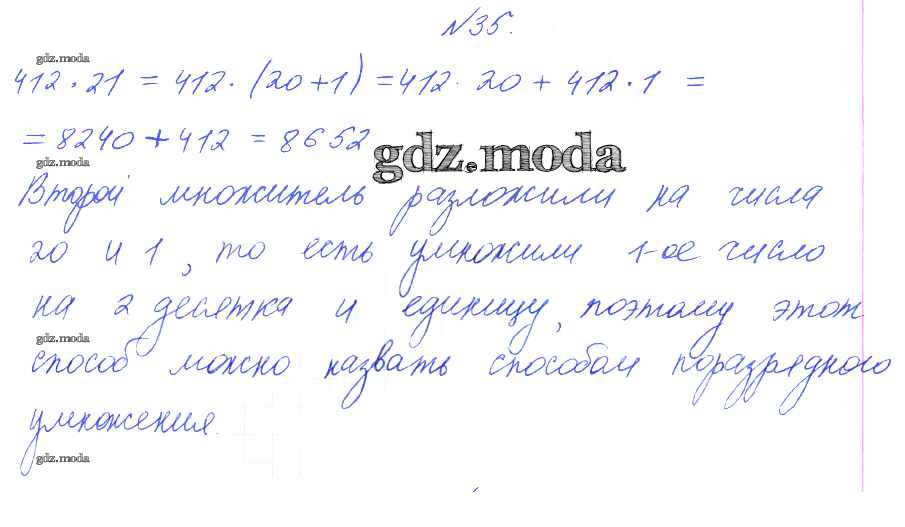 №35.
gdz.moda
412 · 21 = 412 · (20 + 1) = 412 · 20 + 412 · 1 =
= 8240 + 412 = 8652
gdz.moda
gdz.moda
Второй множитель разложили на числа
20 и 1, то есть умножили 1-ое число
на 2 десятка и единицу, поэтому этот
gdz.moda
способ можно назвать способом поразрядного
умножения.
gdz.moda